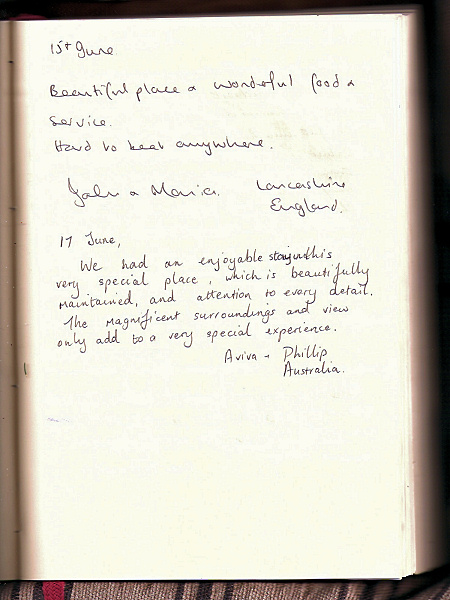 15th June
Beautiful place & wonderful food &
service.
Hard to beat anywhere.
John & Maria. Lancashire
England.
17 June,
We had an enjoyable stay in this
very special place, which is beautifully
maintained, and attention to every detail.
The magnificent surroundings and view
only add to a very special experience.
Aviva + Phillip
Australia.